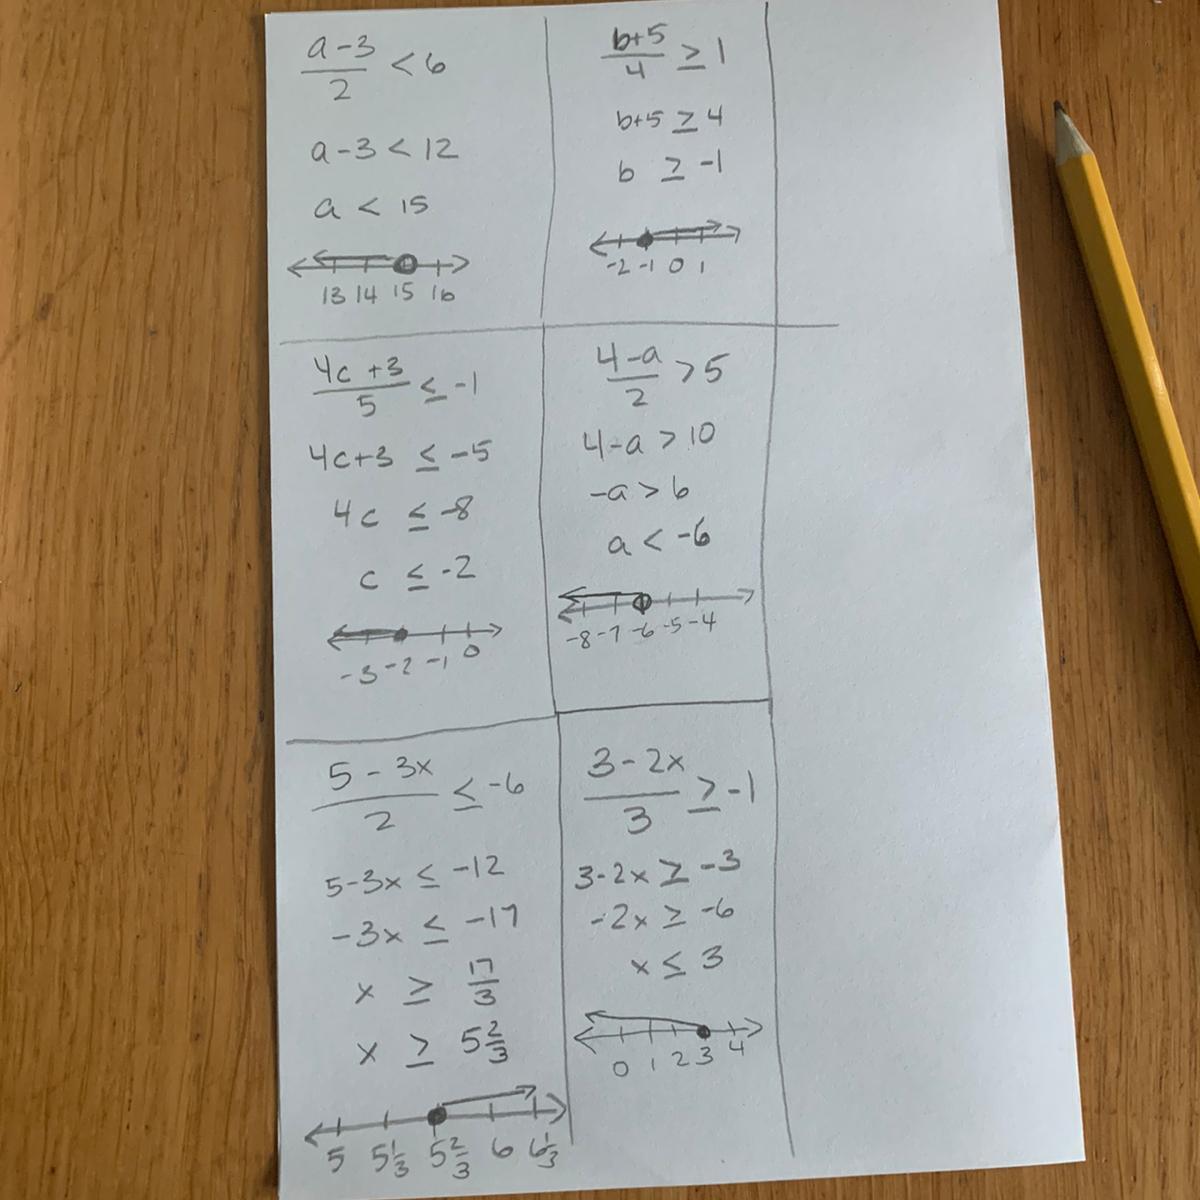 a-3/2 < 6
a-3 < 12
a < 15
13 14 15 16
b+5/4 ≥ 1
b+5 ≥ 4
b ≥ -1
-2 -1 0 1
4c+3/5 ≤ -1
4c+3 ≤ -5
4c ≤ -8
c ≤ -2
-3 -2 -1 0
4-a/2 > 5
4-a > 10
-a > 6
a < -6
-8 -7 -6 -5 -4
5-3x/2 ≤ -6
5-3x ≤ -12
-3x ≤ -17
x ≥ 17/3
x ≥ 5 2/3
5 5 1/3 5 2/3 6 6 1/3
3-2x/3 ≥ -1
3-2x ≥ -3
-2x ≥ -6
x ≤ 3
0 1 2 3 4